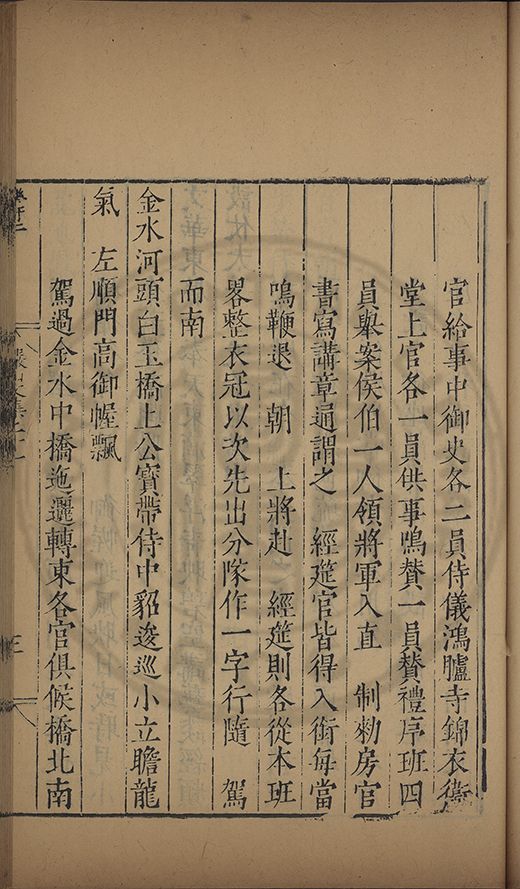 官給事中御史各二員侍儀鴻臚寺錦衣衛
堂上官各一員供事鳴贊一員贊禮序班四
員舉案侯伯一人領將軍入直　制勑房官
書寫講章通謂之　經筵官皆得入銜每當
鳴鞭退　朝　上將赴　經筵則各從本班
畧整衣冠以次先出分隊作一字行隨　駕
而南
金水河頭白玉橋上公寶帶侍中貂逡巡小立瞻龍
氣　左順門高御幄飄
駕過金水中橋迤邐轉東各官俱候橋北南
三